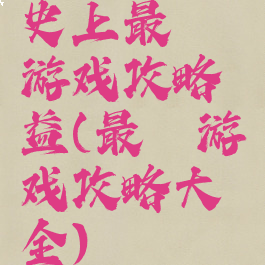 史上最
游戏攻略
益(最 游
戏攻略大
全)